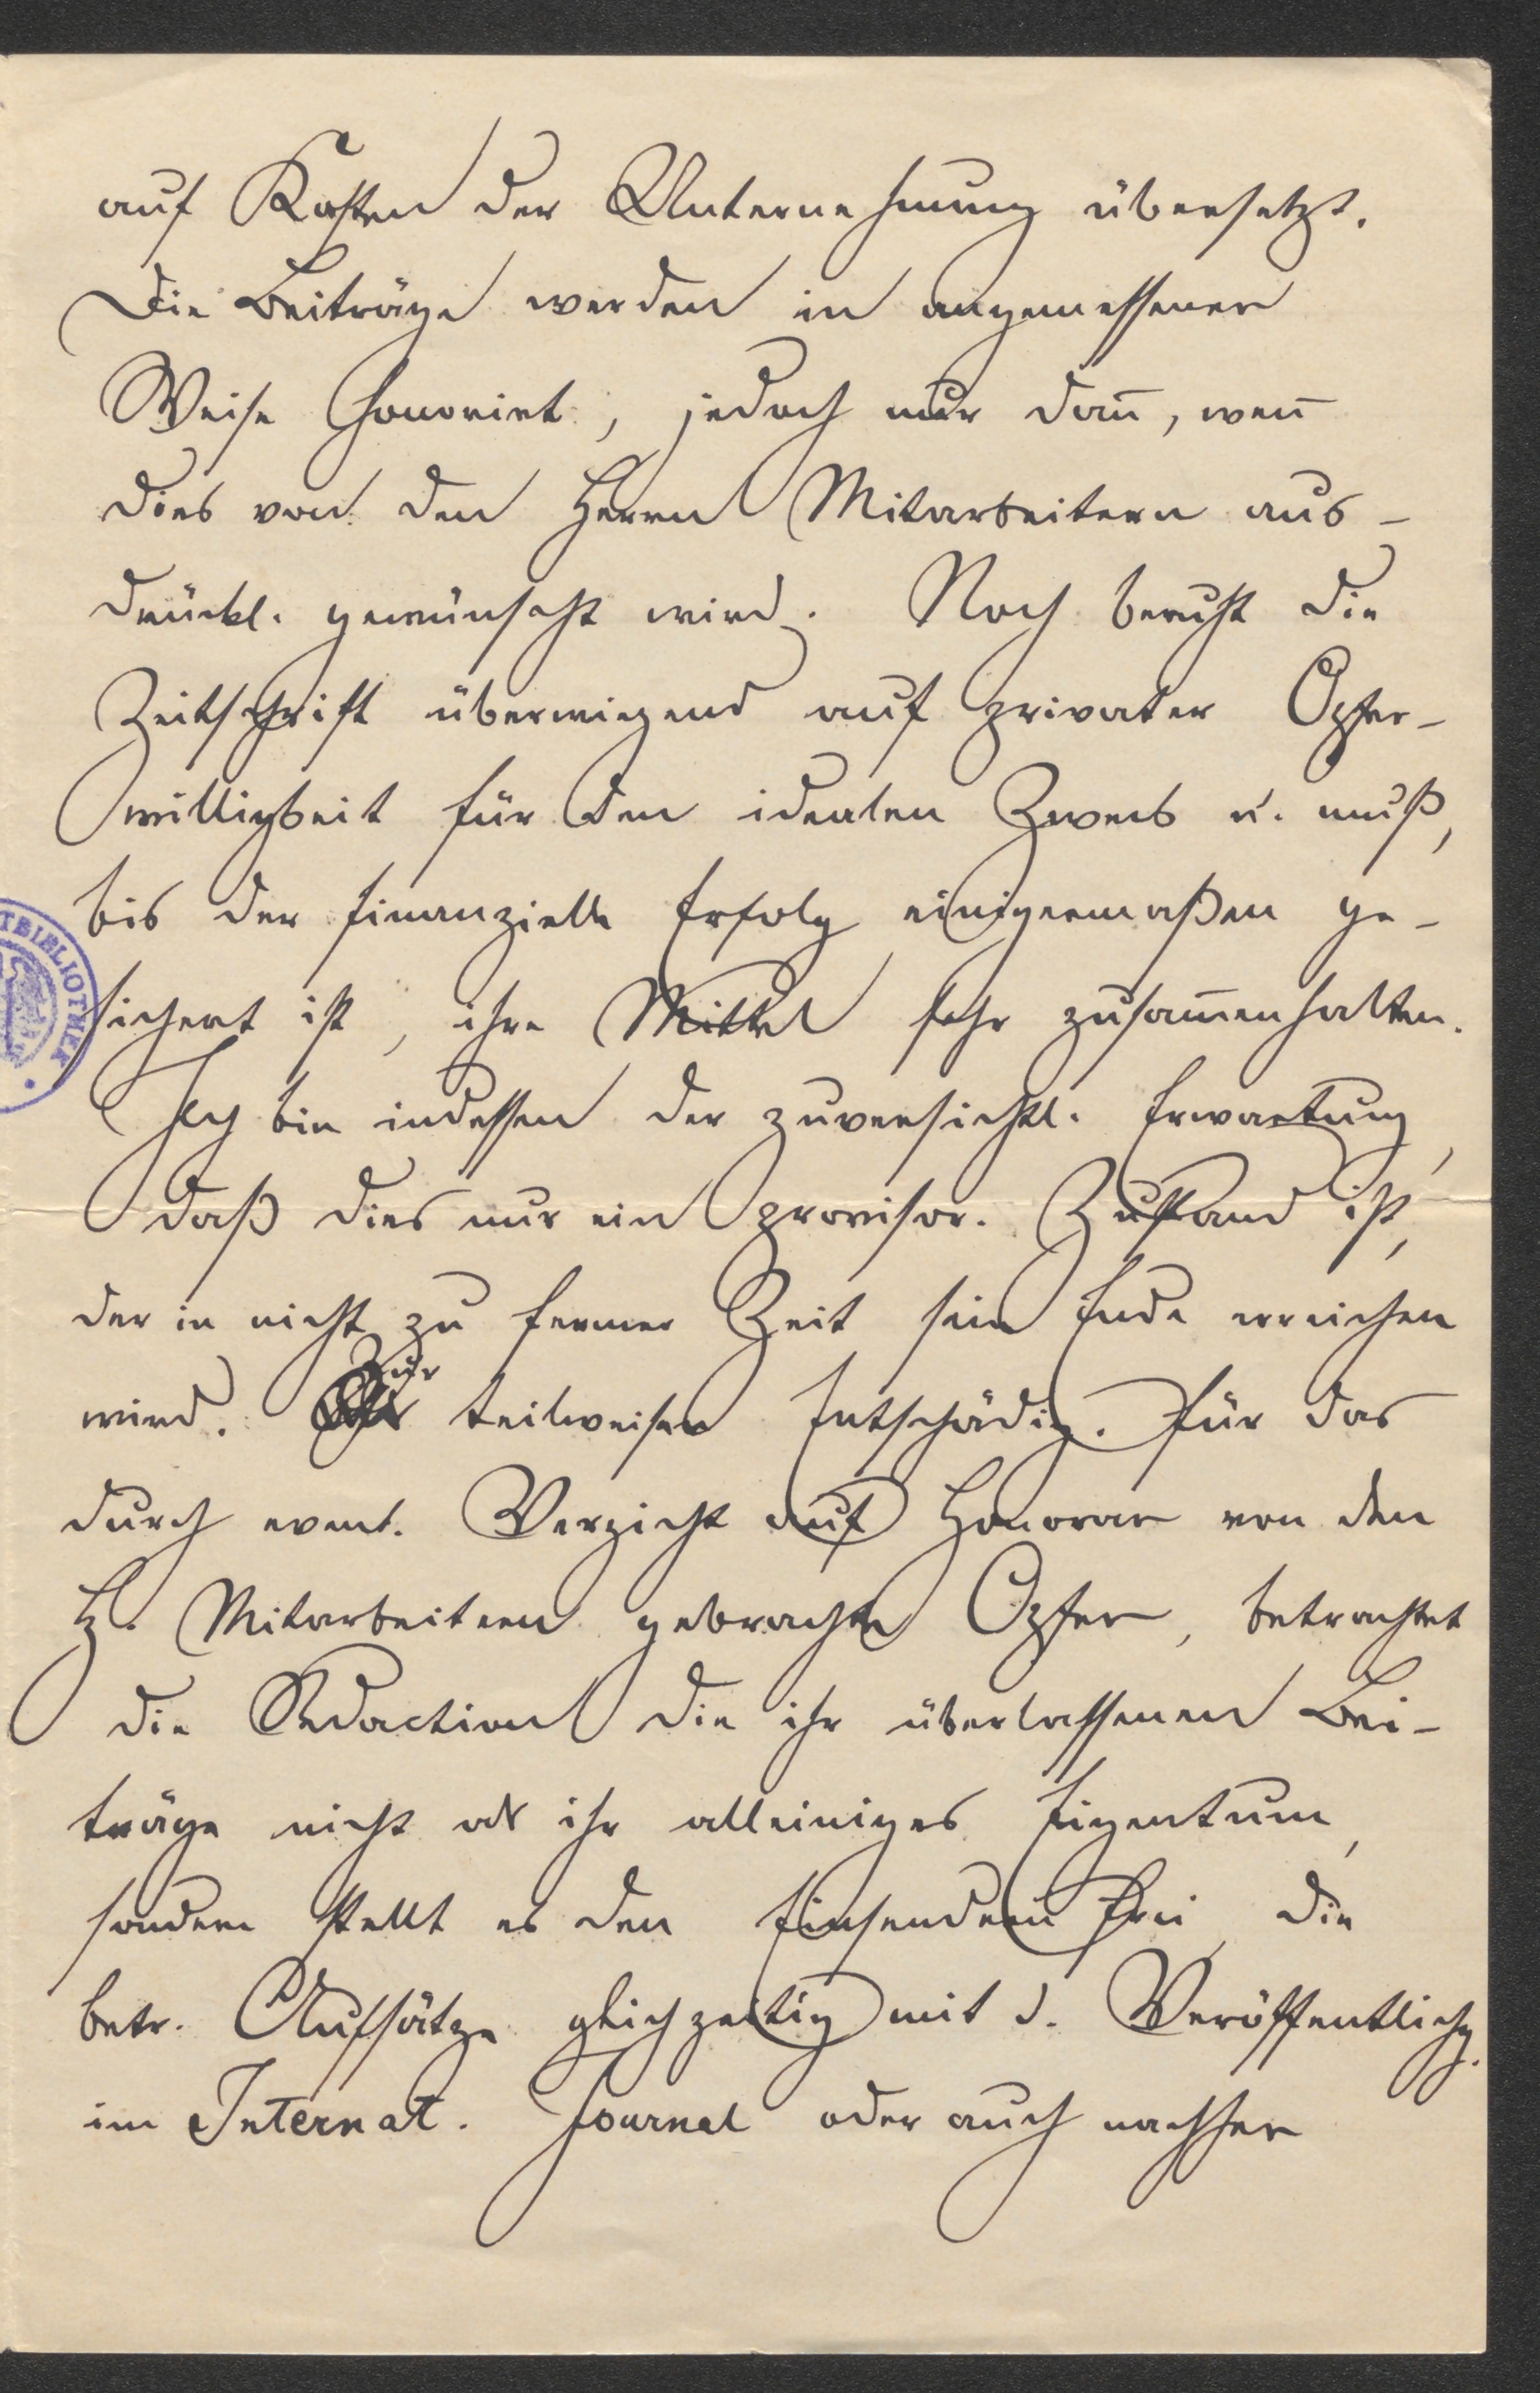 auf Kosten der Unternehmung übersetzt.
Die Beiträge werden in angemessener
Weise honorirt, jedoch nur dan̄, wen̄
dies von den Herrn Mitarbeitern aus-
drückl. gewünscht wird. Noch beruht die
Zeitschrift überwiegend auf privater Opfer-
willigkeit für den idealen Zweck u. muß,
bis der finanzielle Erfolg einigermaßen ge-
sichert ist, ihre Mittel sehr zusam̄enhalten.
Ich bin indessen der zuversichtl. Erwartung,
daß dies nur ein provisor. Zustand ist,
der in nicht zu ferner Zeit sein Ende erreichen
wird. Zur teilweisen Entschädig. für das
durch event. Verzicht auf Honorar von den
H. Mitarbeitern gebrachte Opfer, betrachtet
die Redaction die ihr überlassenen Bei-
träge nicht als ihr alleiniges Eigentum,
sondern stellt es den Einsendern frei, die
betr. Aufsätze gleichzeitig mit d. Veröffentlichg.
im Internat. Journal oder auch nachher
TBIBLIOTHEK